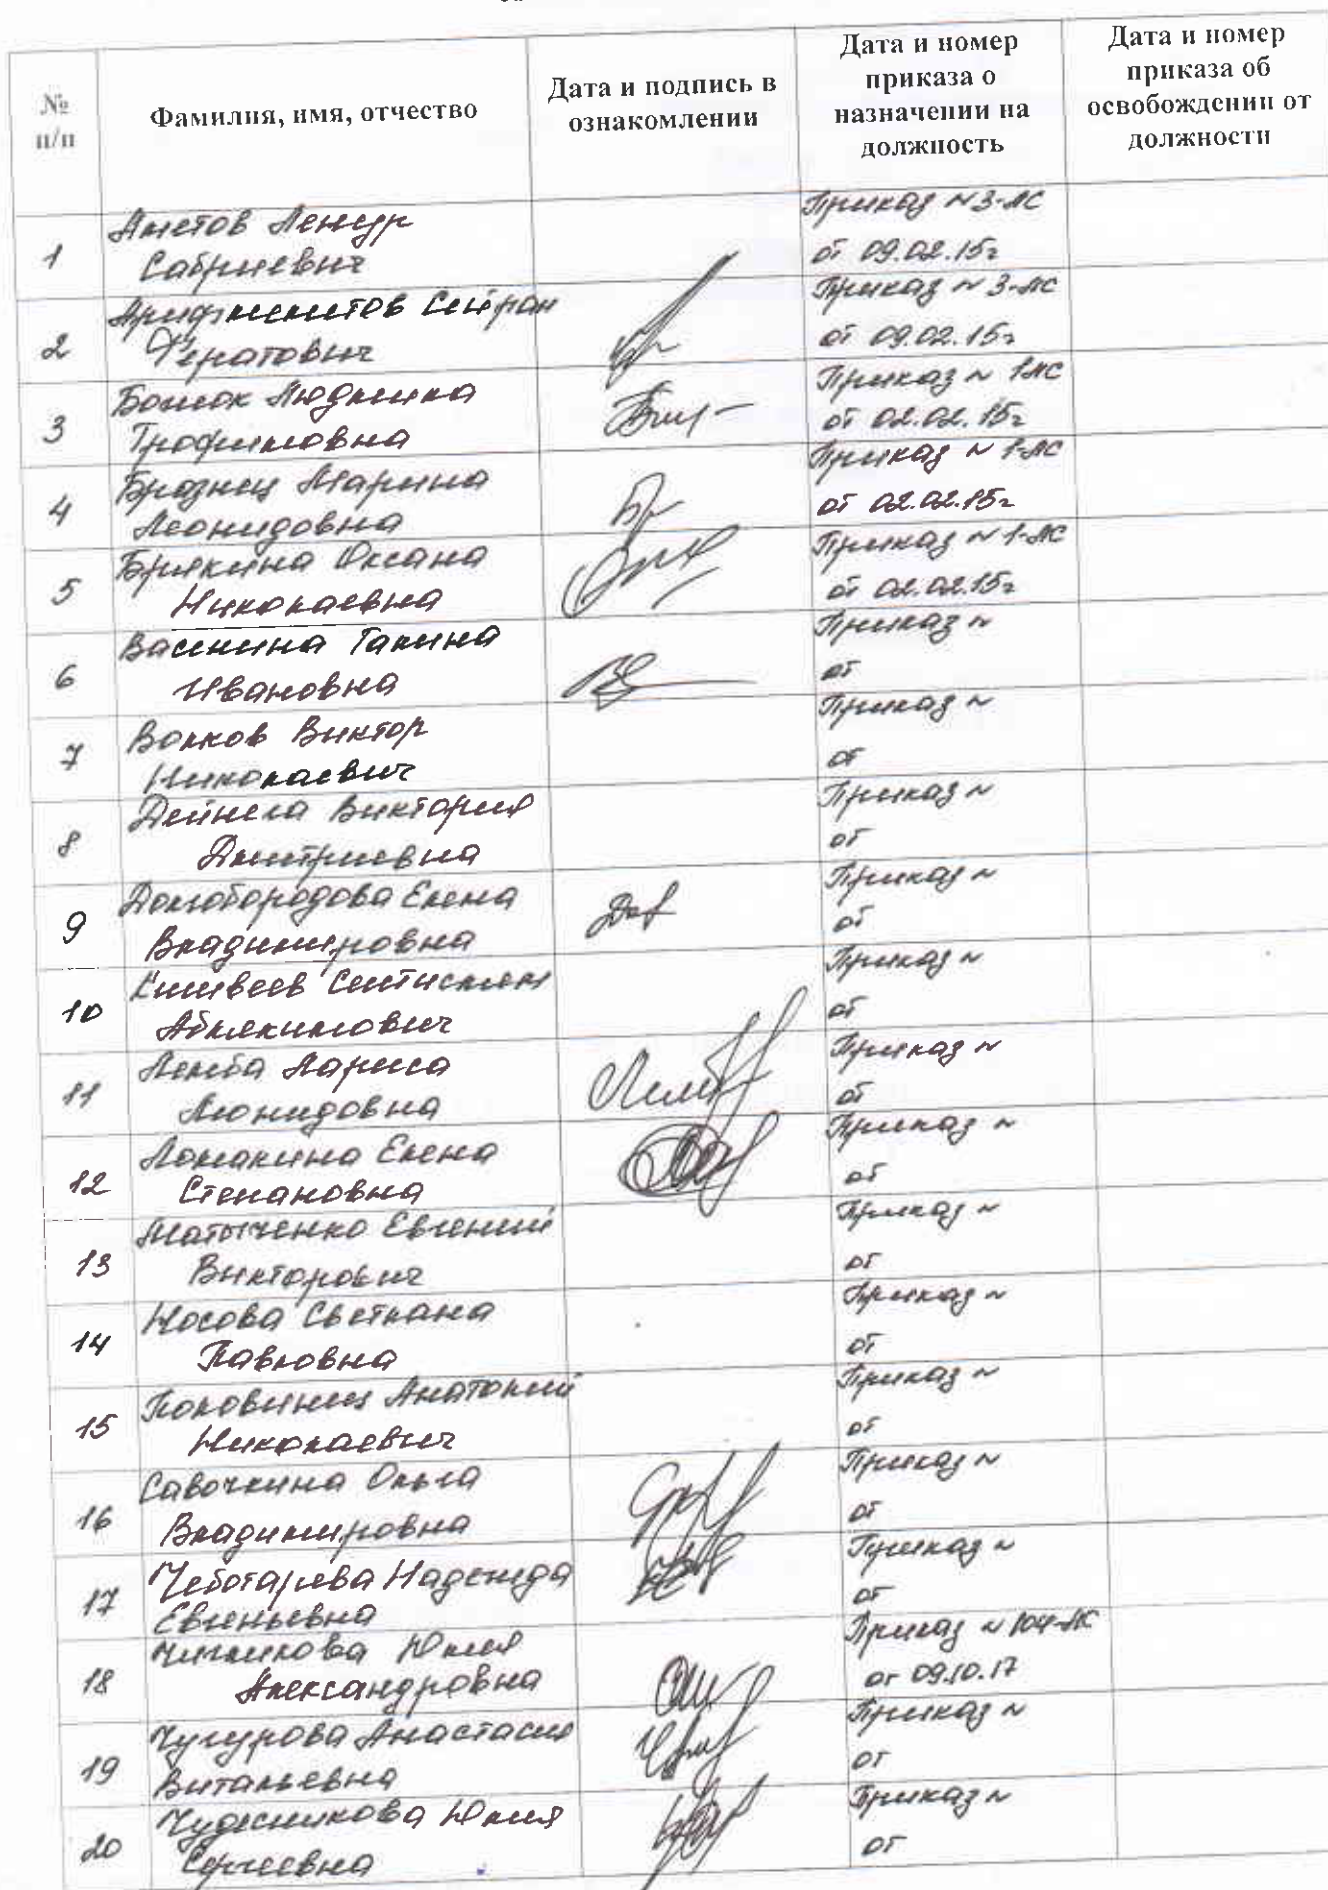 № п/п
Фамилия, имя, отчество
Дата и подпись в ознакомлении
Дата и номер приказа о назначении на должность
Дата и номер приказа об освобождении от должности
1
Аметов Ленур
Сабриевич
Приказ №3-ЛС
от 09.02.15г
2
Арифмеметов Сейран
Фератович
Приказ № 3-ЛС
от 09.02.15г
3
Людмила
Трофимовна
Приказ № 1ЛС
от 02.02.15г
4
Марина
Леонидовна
Приказ № 1-ЛС
от 02.02.15г
5
Брикина Оксана
Николаевна
Приказ № 1-ЛС
от 02.02.15г
6
Васикина Галина
Ивановна
Приказ №
от
7
Волков Виктор
Николаевич
Приказ №
от
8
Дейнега Виктория
Дмитриевна
Приказ №
от
9
Долгобородова Елена
Владимировна
Приказ №
от
10
Приказ №
от
11
Лемба Лариса
Леонидовна
Приказ №
от
12
Ломакина Елена
Степановна
Приказ №
от
13
Матыченко Евгений
Викторович
Приказ №
от
14
Носова Светлана
Павловна
Приказ №
от
15
Половинец Анатолий
Николаевич
Приказ №
от
16
Савочкина Ольга
Владимировна
Приказ №
от
17
Чеботарева Надежда
Евгеньевна
Приказ №
от
18
Чигликова Юлия
Александровна
Приказ № 104-ЛС
от 09.10.17
19
Чугурова Анастасия
Витальевна
Приказ №
от
20
Чудесникова Юлия
Сергеевна
Приказ №
от